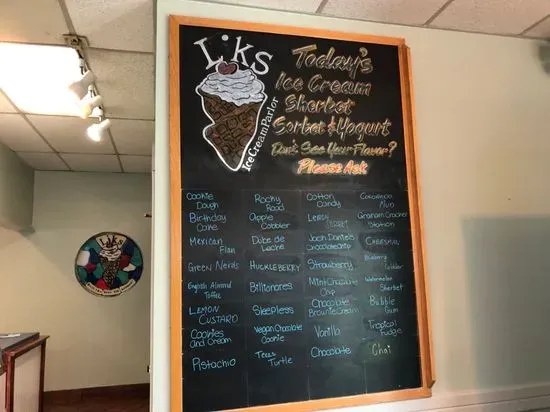 Liks
Ice Cream Parlor
Today's
Ice Cream
Sherbet
Sorbet & Yogurt
Don't See Your Flavor?
Please Ask
Cookie
Dough
Birthday
Cake
Mexican
Flan
Green Nerds
English Almond
Toffee
LEMON
CUSTARD
Cookies
and Cream
Pistachio
Rocky
Road
Apple
Cobbler
Dulce de
Leche
HUCKLEBERRY
Billionares
Sleepless
Vegan Chocolate
Cookie
Texas
Turtle
Cotton
Candy
LEMON
Jack Daniels
Chocolate Chip
Strawberry
Mint Chocolate
Chip
Chocolate
Brownie Cream
Vanilla
Chocolate
COLORADO
MUD
Graham Cracker
Station
Blueberry
Cobbler
Watermelon
Sherbet
Bubble
Gum
Tropical
Fudge
Chai
Liks